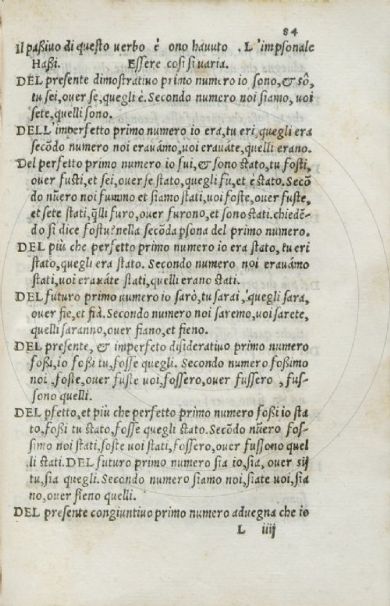 84
Il paßiuo di questo uerbo è ono hauuto .L'impsonale
Haßi. Essere così si uaria.
DEL presente dimostratiuo primo numero io sono, & sõ,
tu sei, ouer se, quegli è. Secondo numero noi siamo, uoi
sete, quelli sono.
DELL'imperfetto primo numero io era, tu eri, quegli era
secõdo numero noi erauamo, uoi erauate, quelli erano.
Del perfetto primo numero io fui, & sono stato, tu fosti,
ouer fusti, et sei, ouer se stato, quegli fu, et è stato. Secõ
do nũero noi fummo et siamo stati, uoi foste, ouer fuste,
et sete stati, q̃lli furo, ouer furono, et sono stati. chiedẽ-
do si dice fostu? nella secõda psona del primo numero.
DEL più che perfetto primo numero io era stato, tu eri
stato, quegli era stato. Secondo numero noi erauamo
stati, uoi erauate stati, quelli erano stati.
DEL futuro primo numero io sarò, tu sarai, quegli sara,
ouer fie, et fia. Secondo numero noi saremo, uoi sarete,
quelli saranno, ouer fiano, et fieno.
DEL presente, & imperfeto disideratiuo primo numero
foßi, io foßi tu, fosse quegli. Secondo numero foßimo
noi, foste, ouer fuste uoi, fossero, ouer fussero, fus-
sono quelli.
DEL pfetto, et più che perfetto primo numero foßi io sta
to, foßi tu stato, fosse quegli stato. Secõdo nũero fos-
simo noi stati, foste uoi stati, fossero, ouer fussono quel
li stati. DEL futuro primo numero sia io, sia, ouer sij
tu, sia quegli. Secondo numero siamo noi, siate uoi, sia
no, ouer sieno quelli.
DEL presente congiuntiuo primo numero aduegna che io
L iiij